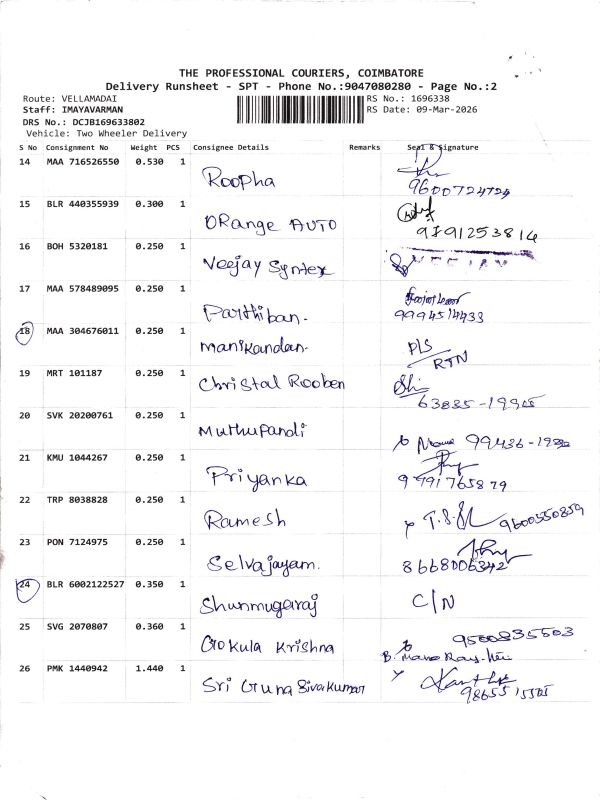 THE PROFESSIONAL COURIERS, COIMBATORE
Delivery Runsheet - SPT - Phone No.:9047080280 - Page No.:2
Route: VELLAMADAI
Staff: IMAYAVARMAN
DRS No.: DCJB169633802
Vehicle: Two Wheeler Delivery
RS No.: 1696338
RS Date: 09-Mar-2026
S No Consignment No Weight PCS Consignee Details Remarks Seal & Signature
14 MAA 716526550 0.530 1 Roopha 9600724724
15 BLR 440355939 0.300 1 ORange AUTO 9791253814
16 BOH 5320181 0.250 1 Veejay Syntex
17 MAA 578489095 0.250 1 Parthiban. 9994514433
18 MAA 304676011 0.250 1 Manikandan. D/S RTN
19 MRT 101187 0.250 1 Christal Rooben
20 SVK 20200761 0.250 1 Muthupandi
21 KMU 1044267 0.250 1 Priyanka
22 TRP 8038828 0.250 1 Ramesh 9600550859
23 PON 7124975 0.250 1 Selvajayam. 8668006342
24 BLR 6002122527 0.350 1 Shunmugaraj C/N
25 SVG 2070807 0.360 1 Gokula Krishna 9500835503
26 PMK 1440942 1.440 1 Sri Guna Sivakumar